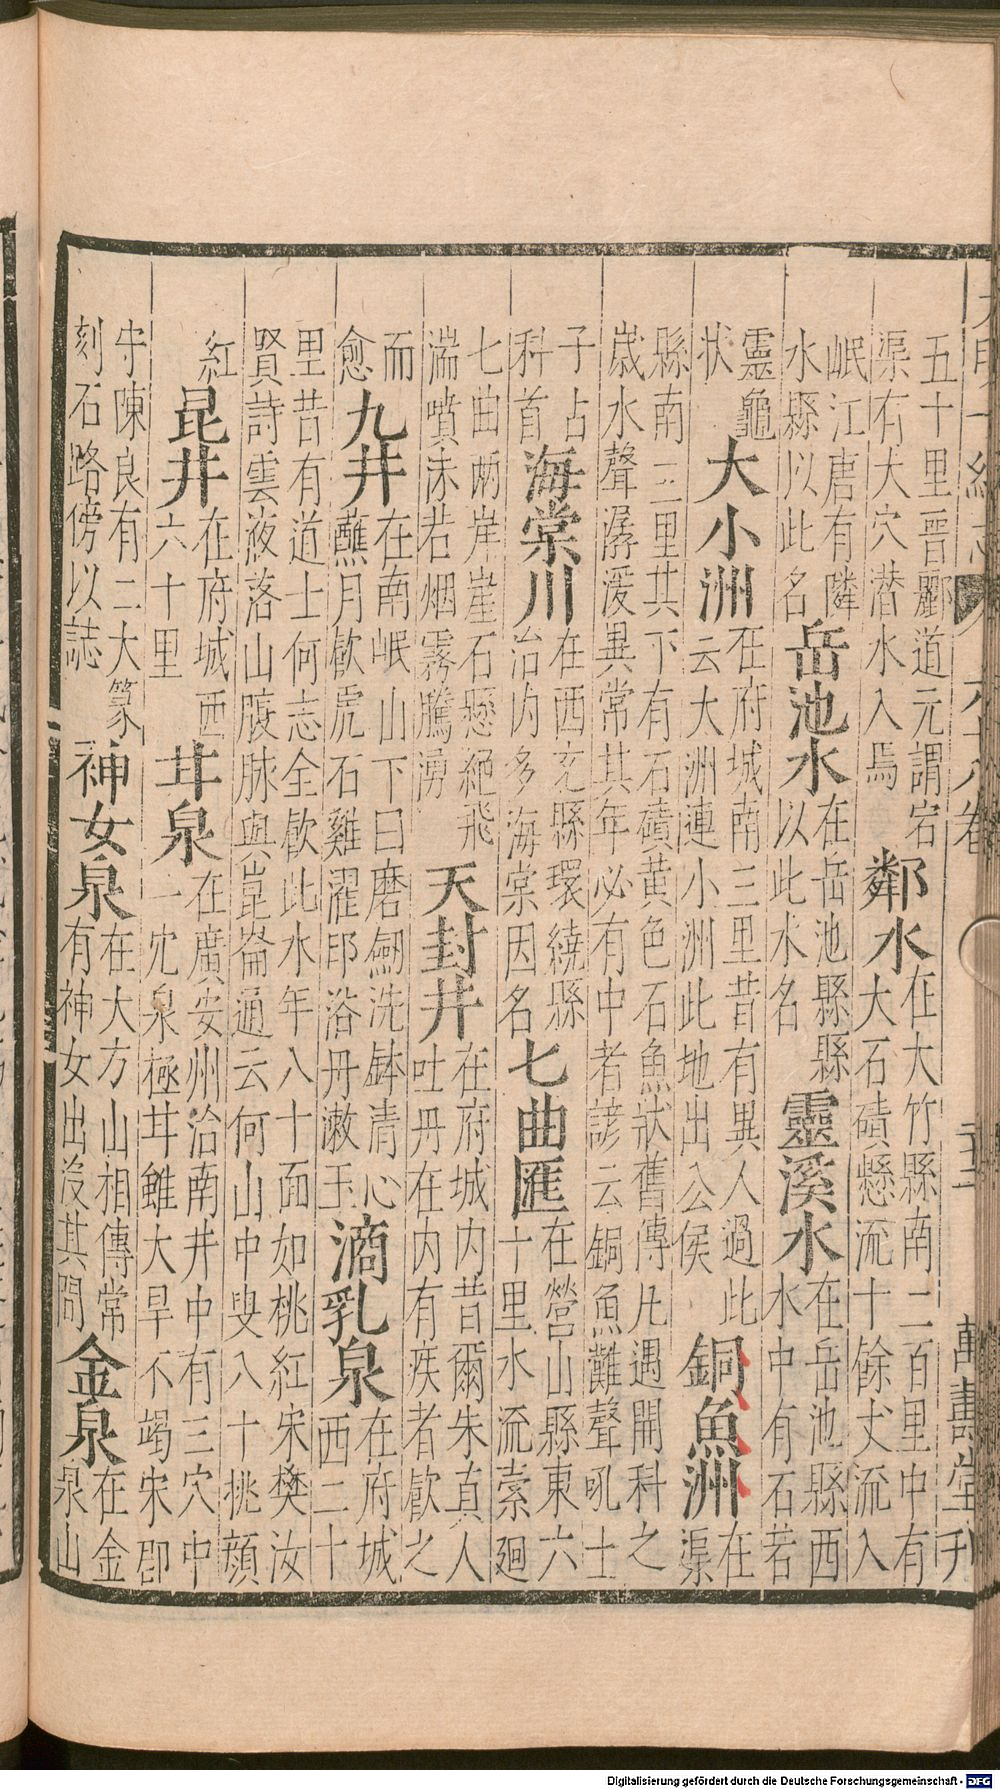 大明一統志 六十八卷 萬壽堂刊
五十里晉酈道元謂宕
渠有大穴潜水入焉
鄰水
在大竹縣南二百里中有
大石磧懸流十餘丈流入
岷江唐有隣
水縣以此名
岳池水
在岳池縣縣
以此水名
靈溪水
在岳池縣西
水中有石若
靈龜
狀
大小洲
在府城南三里昔有異人過此
云大洲連小洲此地出公侯
銅魚洲
在
渠
縣南二里其下有石磧黄色石魚狀舊傳凡遇開科之
歳水聲潺湲異常其年必有中者諺云銅魚灘聲吼士
子占
科首
海棠川
在西充縣環繞縣
治内多海棠因名
七曲匯
在營山縣東六
十里水流縈廻
七曲兩岸崖石懸絕飛
湍噴沫若烟霧騰湧
天封井
在府城内昔爾朱真人
吐丹在内有疾者飲之
而
愈
九井
在南岷山下曰磨劒洗鉢清心
蘸月飲虎石雞濯印浴丹漱玉
滴乳泉
在府城
西二十
里昔有道士何志全飲此水年八十面如桃紅宋樊汝
賢詩雲液落山腹脉與崑崙通云何山中叟八十挑顔
紅
昆井
在府城西
六十里
甘泉
在廣安州治南井中有三穴中
一穴泉極甘雖大旱不竭宋郡
守陳良有二大篆
刻石路傍以誌
神女泉
在大方山相傳常
有神女出没其間
金泉
在金
泉山
Digitalisierung gefördert durch die Deutsche Forschungsgemeinschaft - DFG